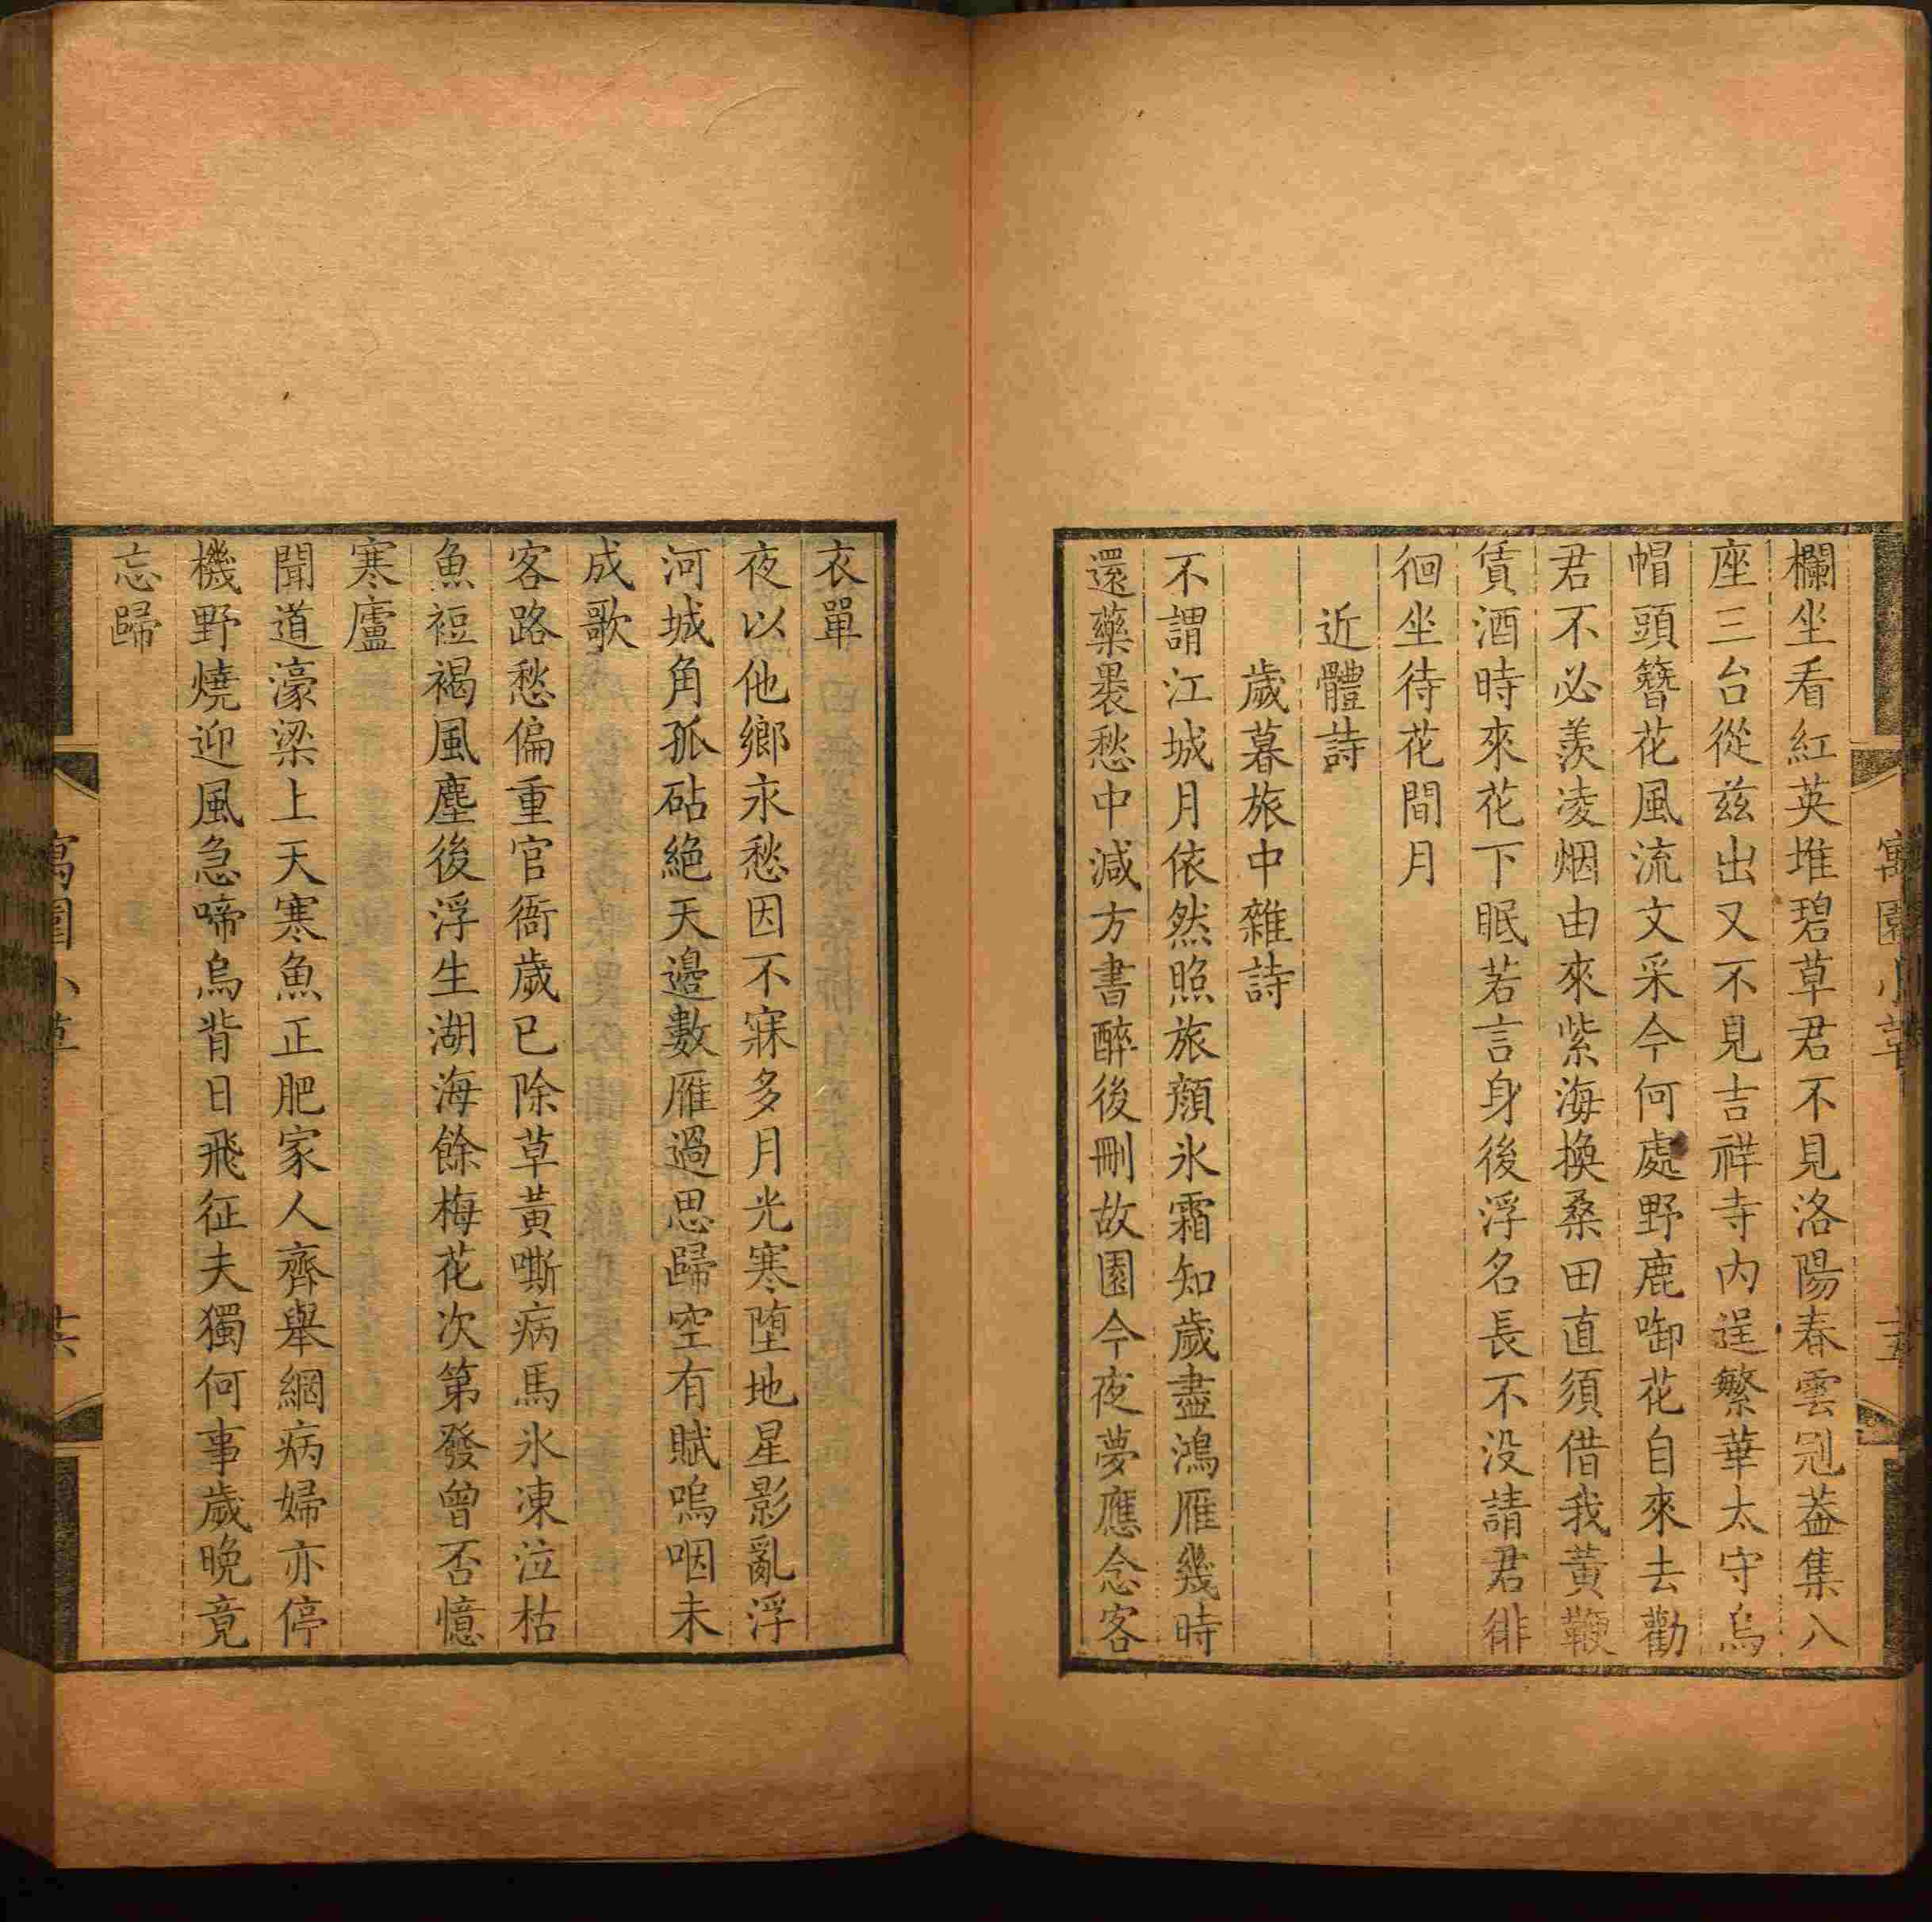 寓園小草
十五
欄坐看紅英堆碧草君不見洛陽春雲冠葢集八
座三台從茲出又不見吉祥寺內逞繁華太守烏
帽頭簪花風流文采今何處野鹿啣花自來去勸
君不必羨凌烟由來紫海換桑田直須借我黃鞭
賃酒時來花下眠若言身後浮名長不没請君徘
徊坐待花間月
近體詩
歲暮旅中雜詩
不謂江城月依然照旅顏氷霜知歲盡鴻雁幾時
還藥褁愁中減方書醉後刪故園今夜夢應念客
衣單
夜以他鄉永愁因不寐多月光寒堕地星影亂浮
河城角孤砧絶天邉數雁過思歸空有賦嗚咽未
成歌
客路愁偏重官衙歲已除草黃嘶病馬氷凍泣枯
魚裋褐風塵後浮生湖海餘梅花次第發曾否憶
寒廬
聞道濠梁上天寒魚正肥家人齊舉網病婦亦停
機野燒迎風急啼烏背日飛征夫獨何事歲晚竟
忘歸
寓園小草
十六